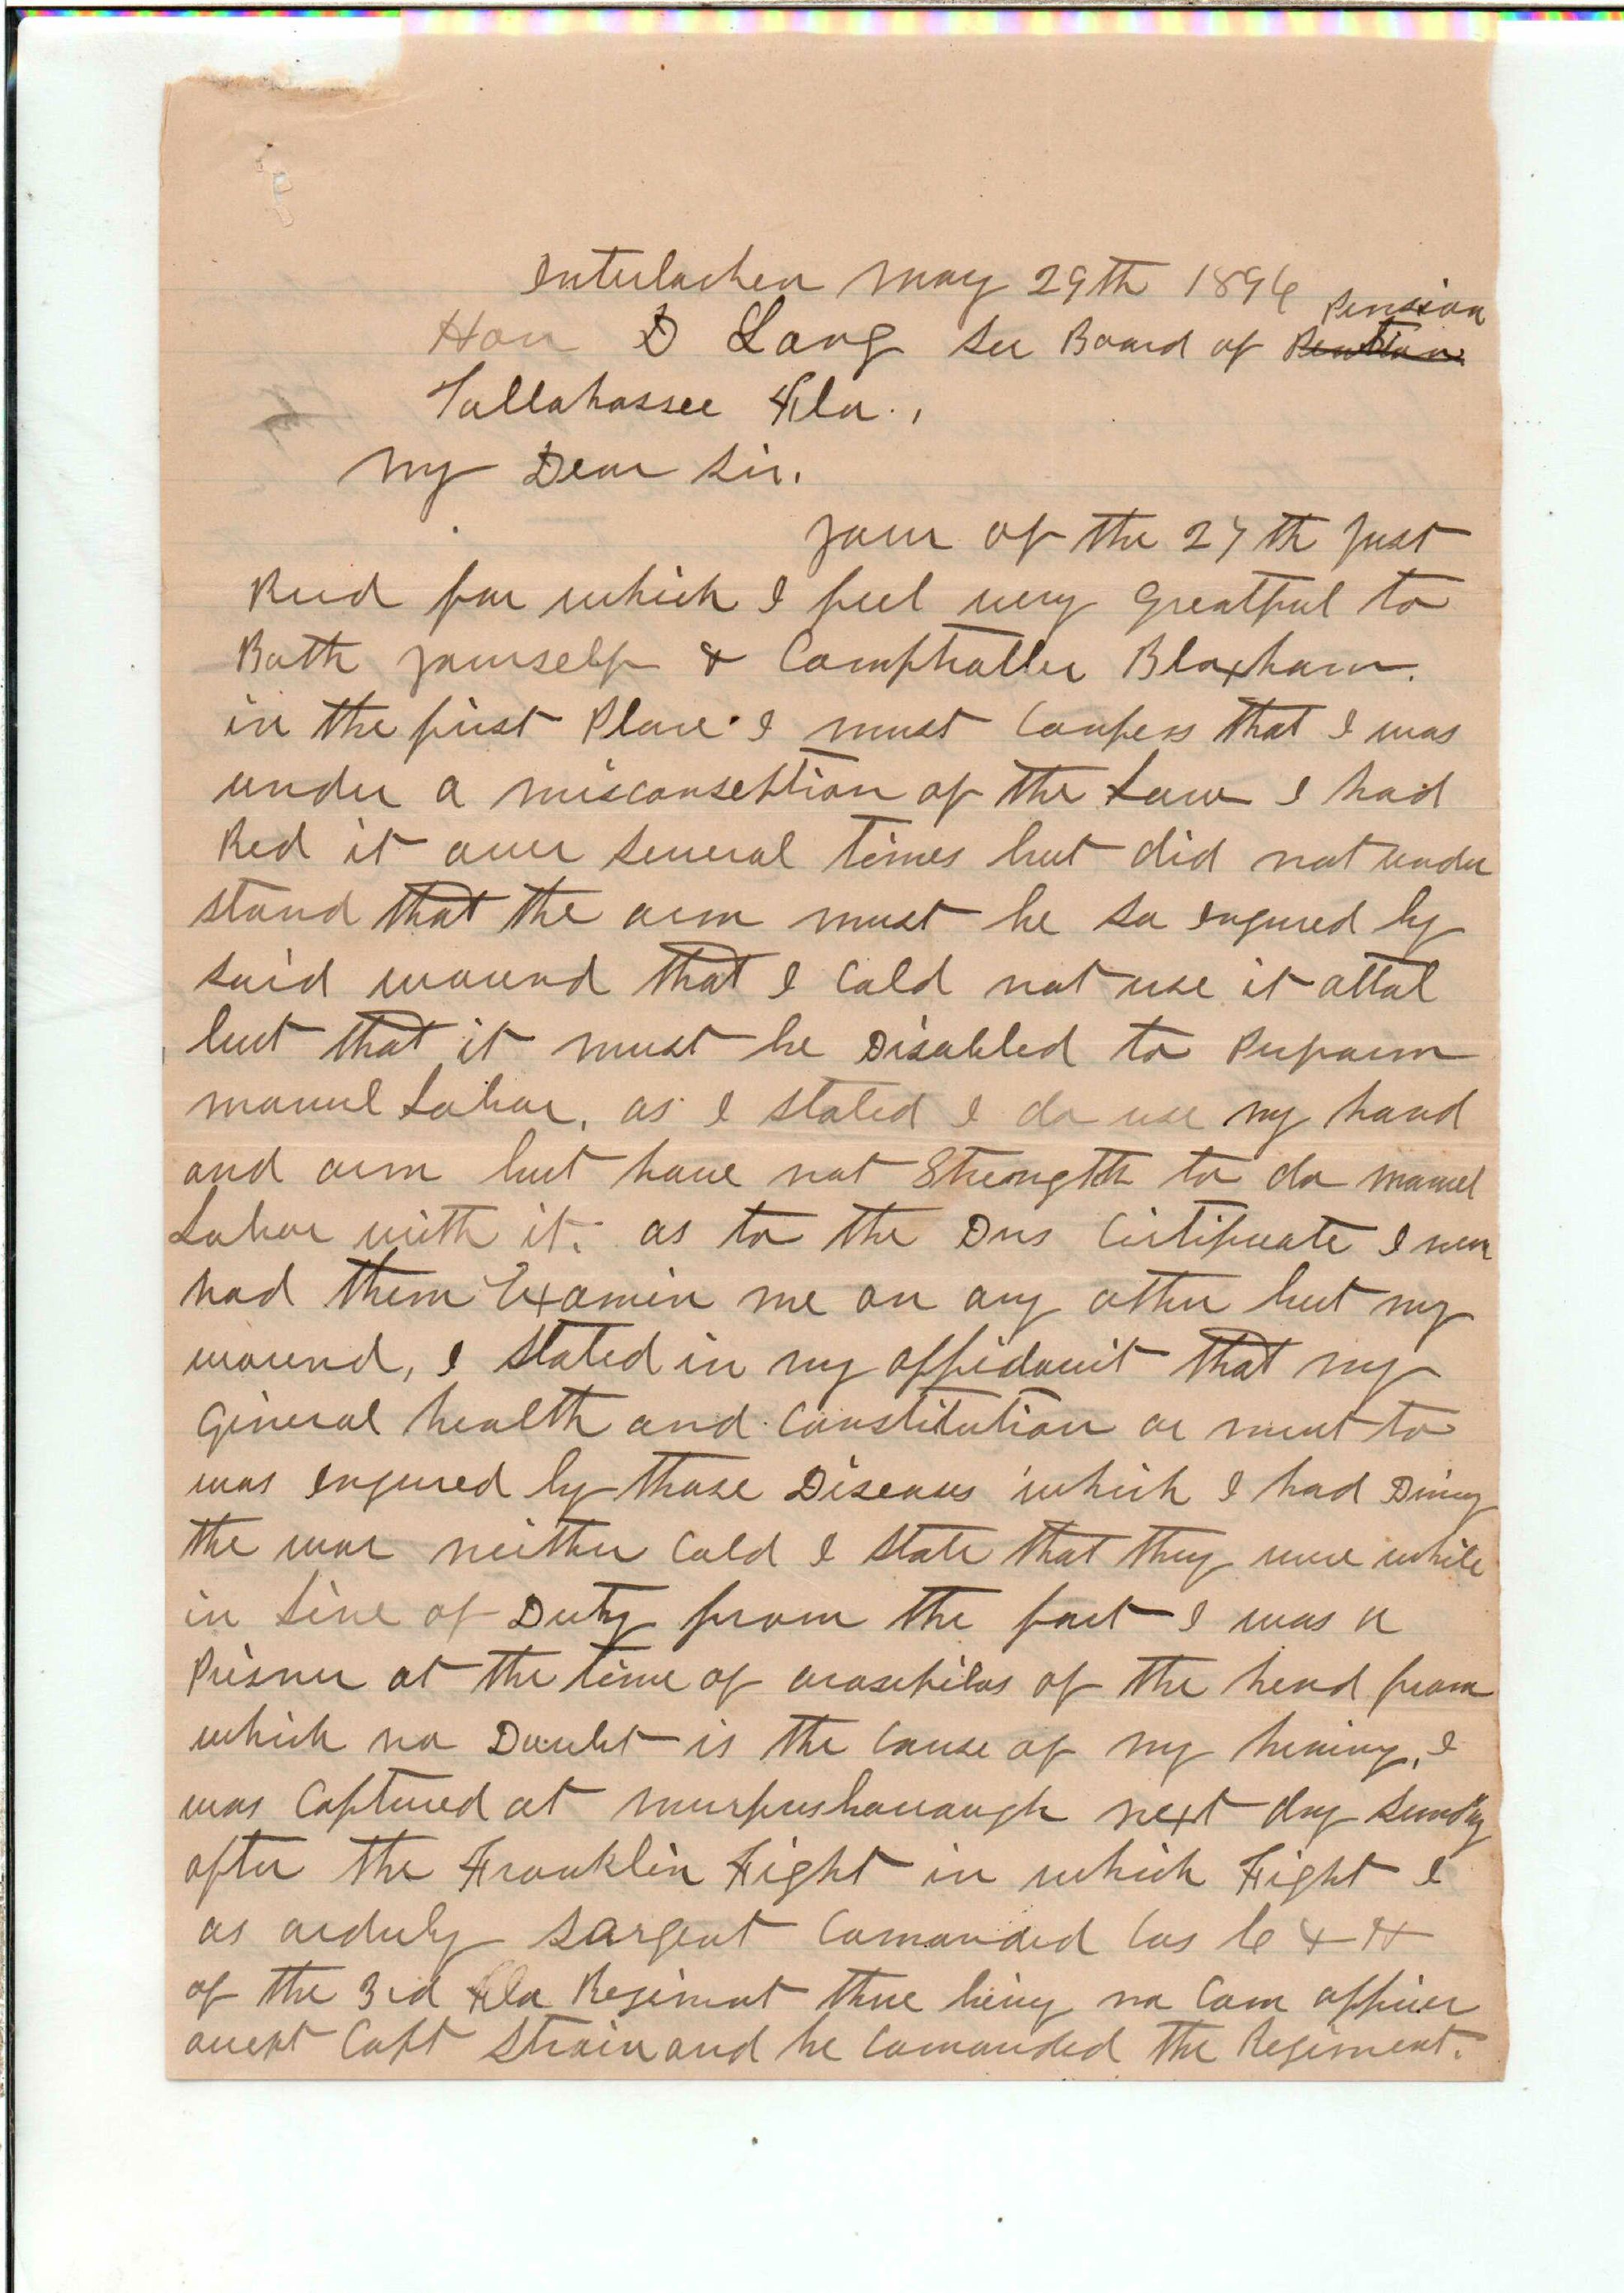 Interlachen May 29th 1896
Hon D Lang Sec Board of Pension
Tallahassee Fla.,
My Dear Sir.
your of the 27th Just
Recd for which I feel very greatful to
Both yourself & Comptroller Bloxham.
in the first Place I must Confess that I was
under a misconsebtion of the Law I had
Red it over several times but did not under
stand that the arm must be so engured by
said wound that I Cold not use it attal
but that it must be Disabled to Perform
manuel Labor. as I stated I do use my hand
and arm but have not Strength to do manuel
Labor with it. as to the Drs Certificate I never
had them Examin me on any other but my
wound, I stated in my affidavit that my
General health and Constitution or ment to
was engured by those Diseases which I had During
the war neither Cold I state that they were while
in Line of Duty from the fact I was a
Prisner at the time of erasipilas of the head from
which no Doubt is the Cause of my hering, I
was Captured at murfreshourough next day Sunday
after the Franklin Fight in which Fight I
as orderly Sargent Comanded Cos C & H
of the 3rd Fla Regiment there being no Com officer
except Capt Strain and he Comanded the Regiment.